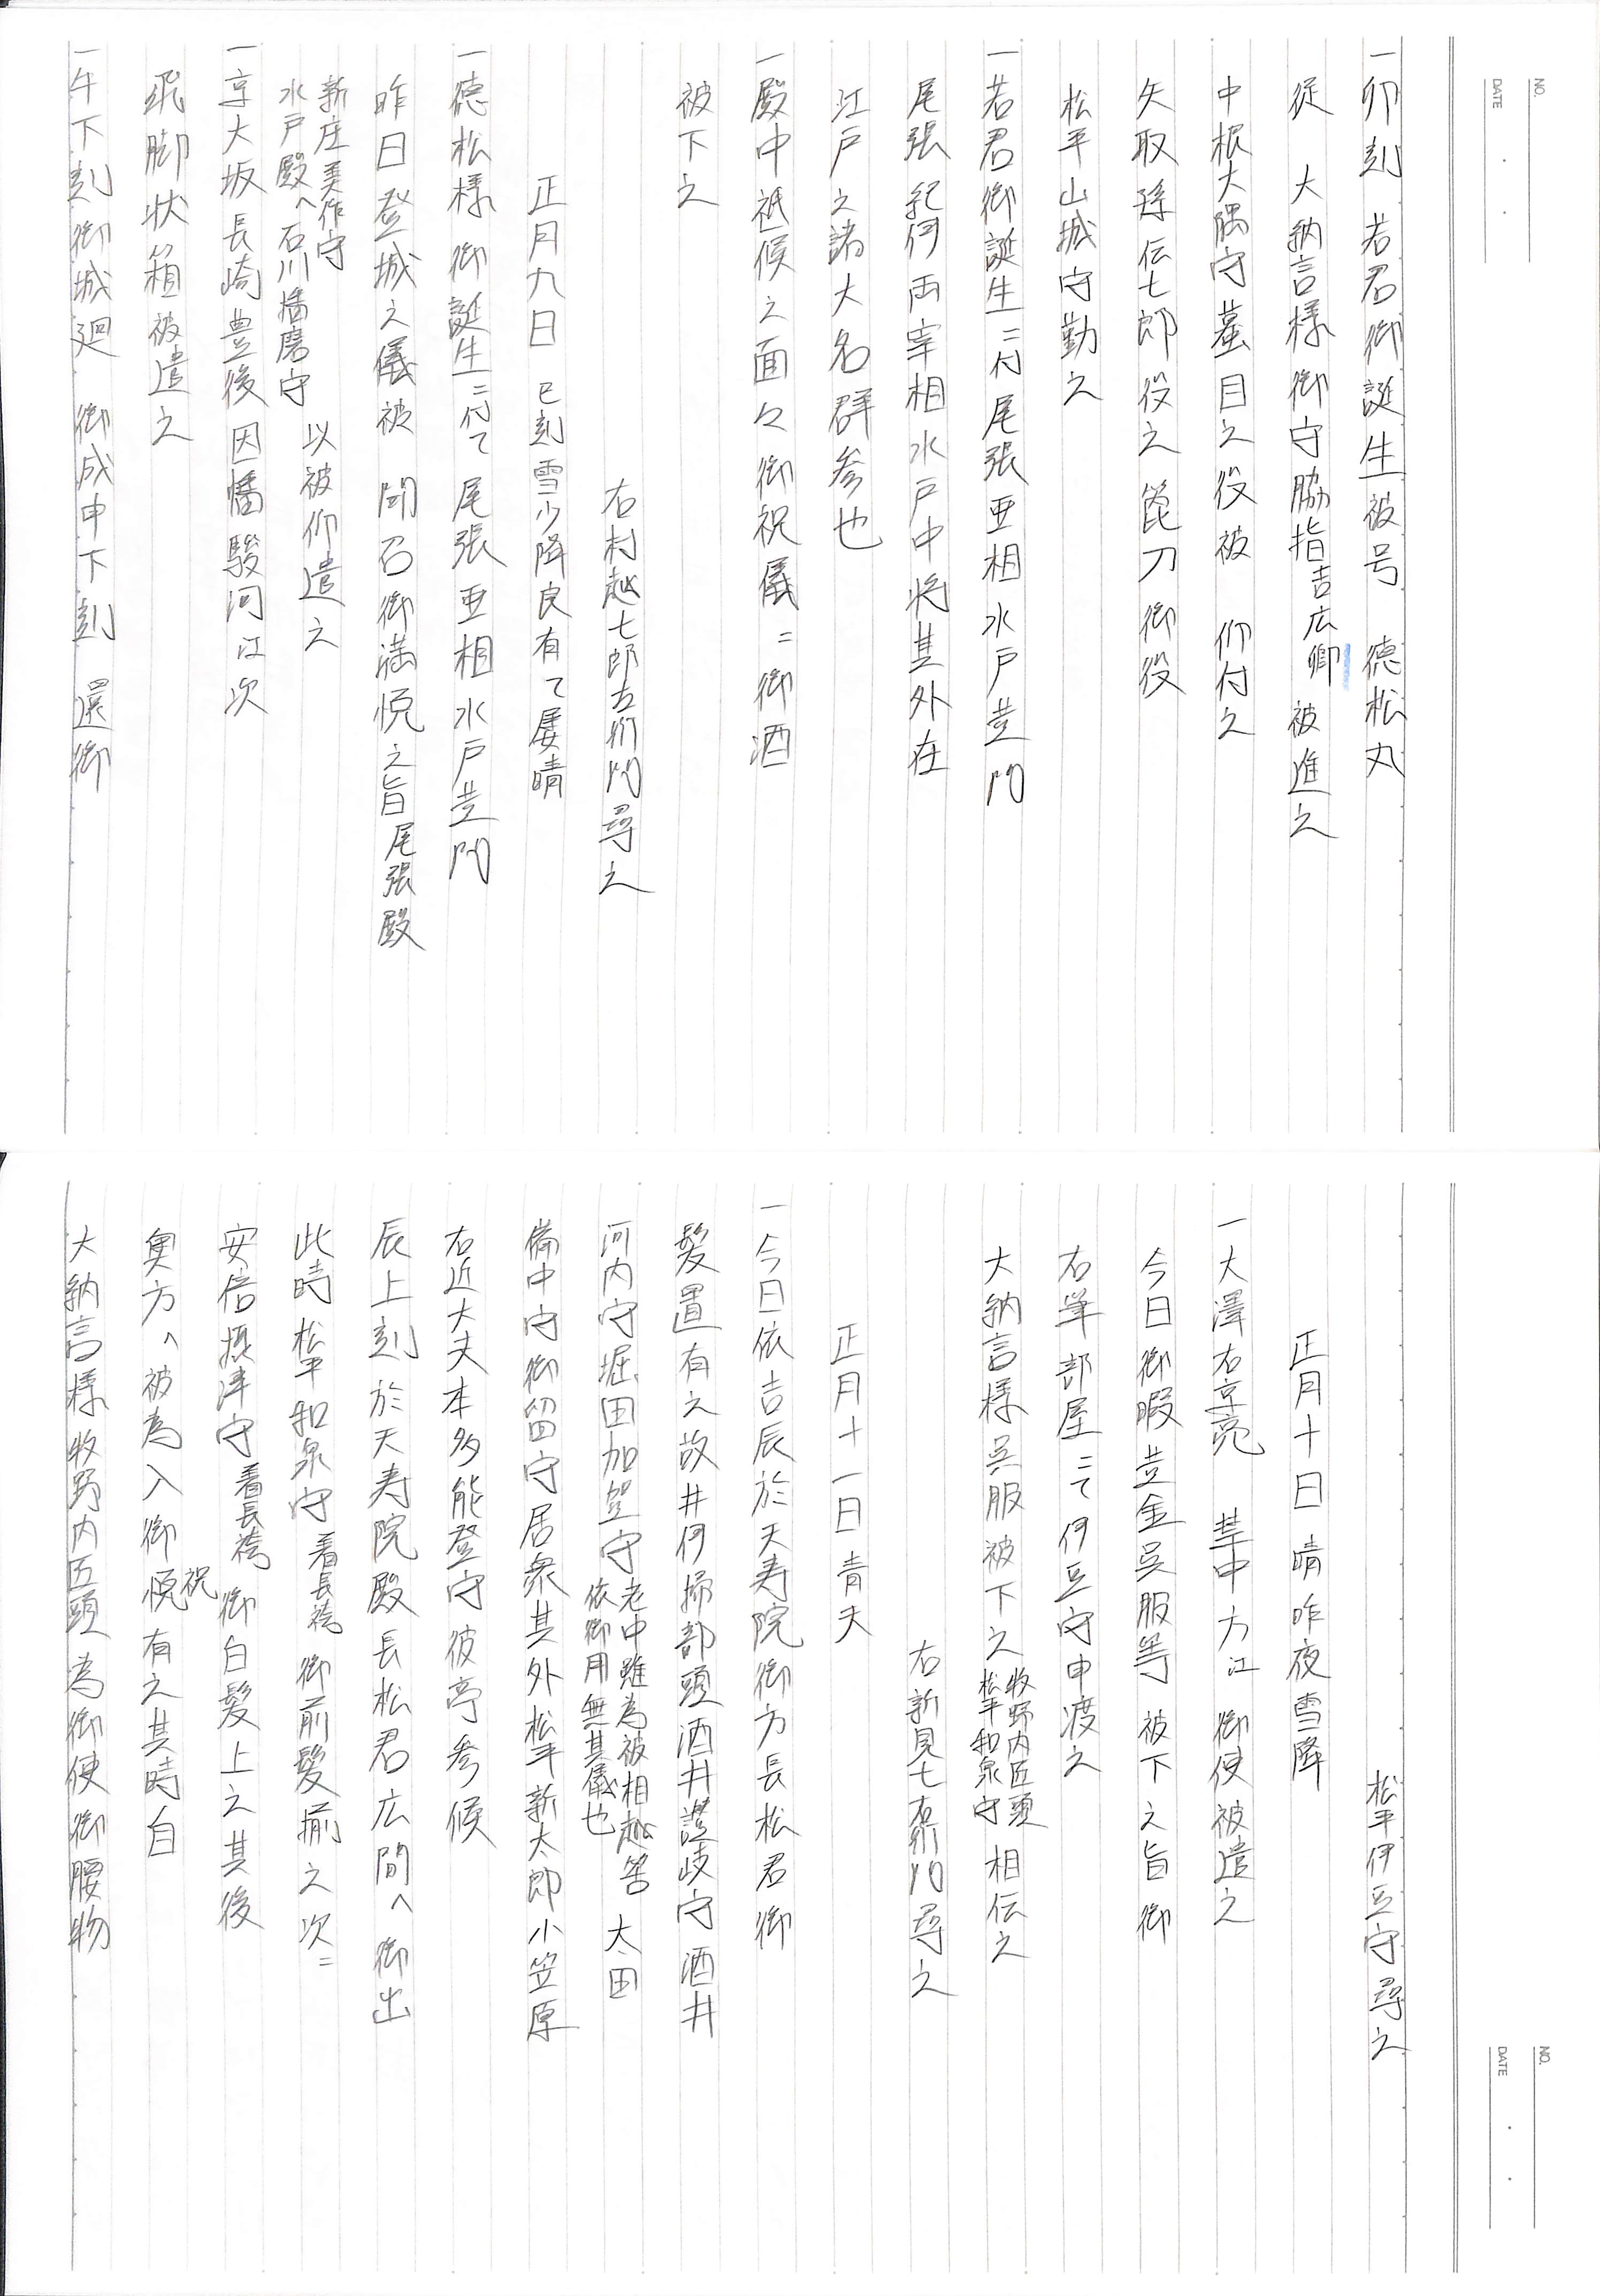 NO.
DATE
一卯刻 若君御誕生被号 徳松丸
従 大納言様御守脇指吉広卿被進之
中根大隅守蟇目之役被 仰付之
矢取孫伝七郎役之箆刀御役
松平山城守勤之
一若君御誕生ニ付尾張亜相水戸黄門
尾張紀伊両宰相水戸中将其外在
江戸之諸大名群参也
一殿中祗候之面々御祝儀ニ御酒
被下之
右村越七郎左衛門尋之
正月九日 巳刻雪少降良有て屡晴
一徳松様御誕生ニ付て尾張亜相水戸黄門
昨日登城之儀被 聞召御満悦之旨尾張殿
新庄美作守
水戸殿へ石川播磨守 以被仰遣之
一京大坂長崎豊後因幡駿河江次
飛脚状箱被遣之
一午下刻御城廻 御成申下刻 還御
NO.
DATE
松平伊豆守尋之
正月十日 晴昨夜雪降
一大澤右京亮 禁中方江 御使被遣之
今日御暇並金呉服等 被下之旨御
右筆部屋ニて伊豆守申渡之
大納言様呉服被下之 牧野内匠頭
松平和泉守 相伝之
右新見七右衛門尋之
正月十一日 青天
一今日依吉辰於天寿院御方長松君御
髪置有之故井伊掃部頭酒井讃岐守酒井
河内守堀田加賀守 老中雖為被相越筈
依御用無其儀也 太田
備中守御留守居衆其外松平新太郎小笠原
右近大夫本多能登守彼亭参候
辰上刻於天寿院殿長松君広間へ御出
此時松平和泉守着長袴御前髪揃之次ニ
安倍摂津守着長袴御白髪上之其後
奥方へ被為入御悦有之其時自
祝
大納言様牧野内匠頭為御使御腰物